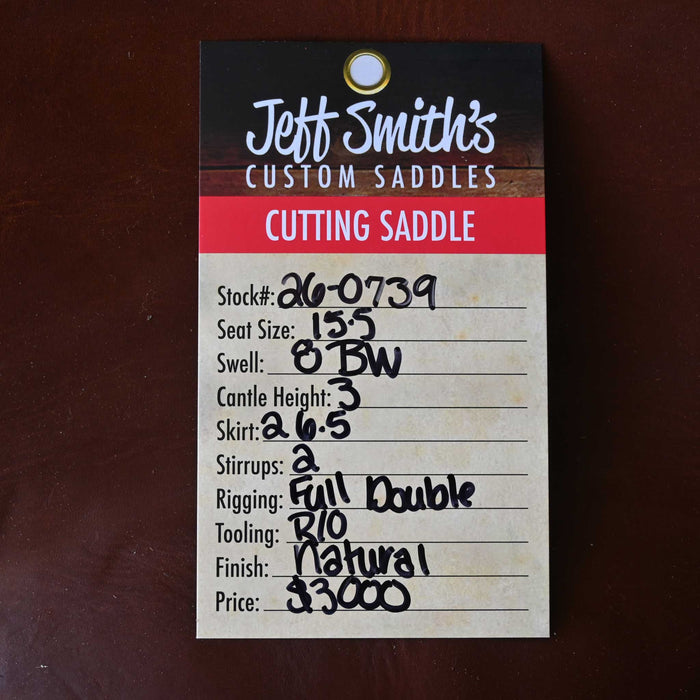 Jeff Smith's
CUSTOM SADDLES
CUTTING SADDLE
Stock#: 26-0739
Seat Size: 15.5
Swell: 8 BW
Cantle Height: 3
Skirt: 26.5
Stirrups: 2
Rigging: Full Double
Tooling: R10
Finish: Natural
Price: $3000